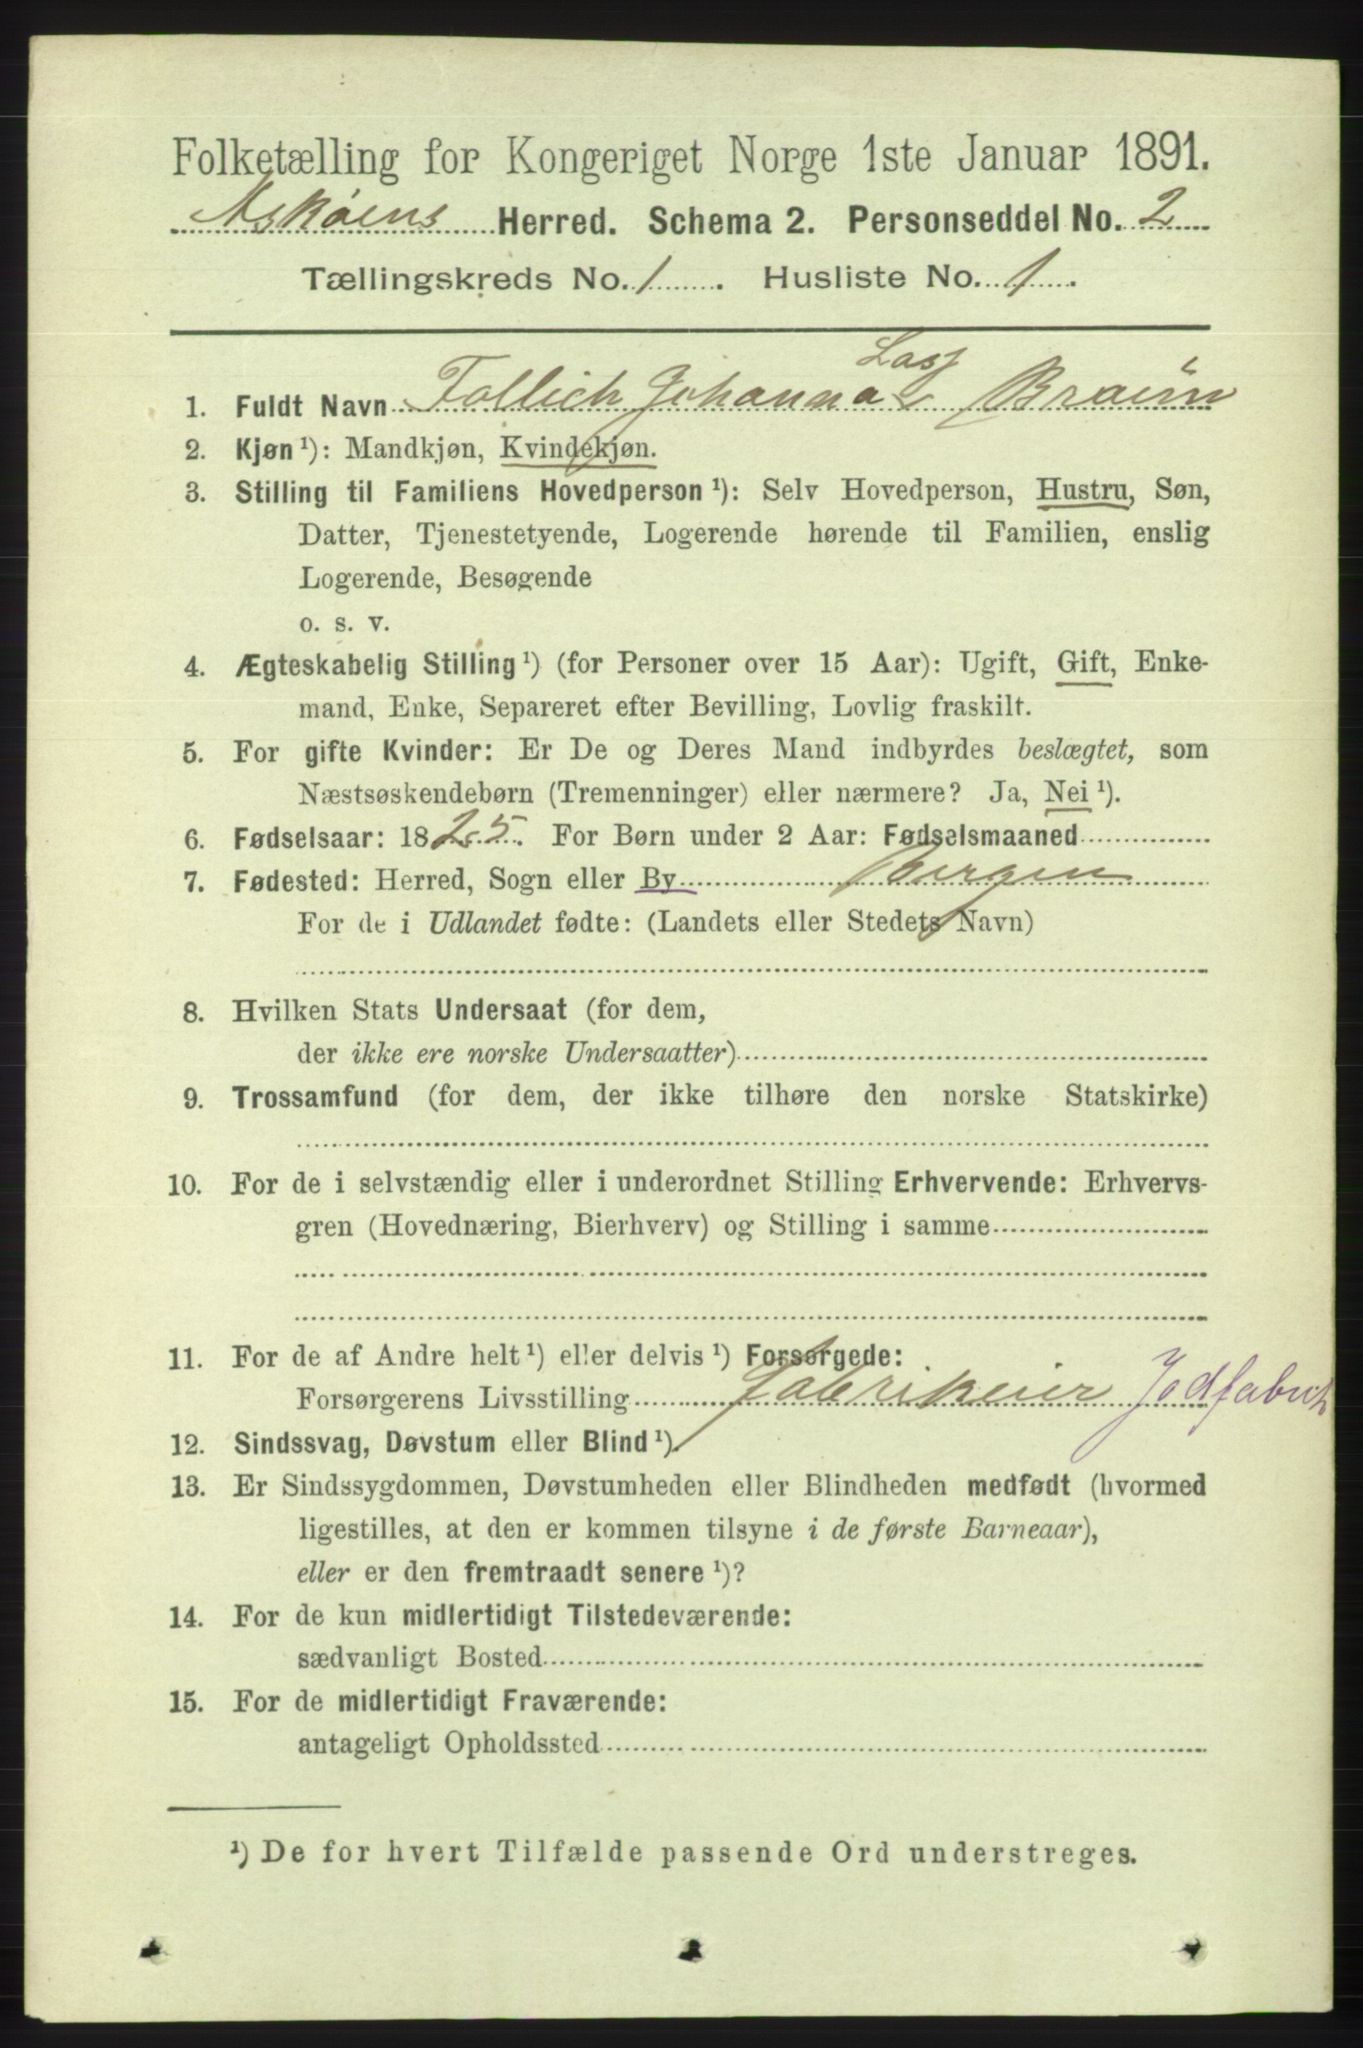 Folketælling for Kongeriget Norge 1ste Januar 1891.
Askøens Herred. Schema 2. Personseddel No. 2
Tællingskreds No. 1. Husliste No. 1.
1. Fuldt Navn Johanna Braün
2. Kjøn ¹): Mandkjøn, Kvindekjøn.
3. Stilling til Familiens Hovedperson ¹): Selv Hovedperson, Hustru, Søn,
Datter, Tjenestetyende, Logerende hørende til Familien, enslig
Logerende, Besøgende
o. s. v.
4. Ægteskabelig Stilling ¹) (for Personer over 15 Aar): Ugift, Gift, Enke-
mand, Enke, Separeret efter Bevilling, Lovlig fraskilt.
5. For gifte Kvinder: Er De og Deres Mand indbyrdes beslægtet, som
Næstsøskendebørn (Tremenninger) eller nærmere? Ja, Nei ¹).
6. Fødselsaar: 1825. For Børn under 2 Aar: Fødselsmaaned
7. Fødested: Herred, Sogn eller By Bergen
For de i Udlandet fødte: (Landets eller Stedets Navn)
8. Hvilken Stats Undersaat (for dem,
der ikke ere norske Undersaatter)
9. Trossamfund (for dem, der ikke tilhøre den norske Statskirke)
10. For de i selvstændig eller i underordnet Stilling Erhvervende: Erhvervs-
gren (Hovednæring, Bierhverv) og Stilling i samme
11. For de af Andre helt ¹) eller delvis ¹) Forsørgede:
Forsørgerens Livsstilling Fabrikeier Jodfabrik
12. Sindssvag, Døvstum eller Blind ¹).
13. Er Sindssygdommen, Døvstumheden eller Blindheden medfødt (hvormed
ligestilles, at den er kommen tilsyne i de første Barneaar),
eller er den fremtraadt senere ¹)?
14. For de kun midlertidigt Tilstedeværende:
sædvanligt Bosted
15. For de midlertidigt Fraværende:
antageligt Opholdssted
¹) De for hvert Tilfælde passende Ord understreges.